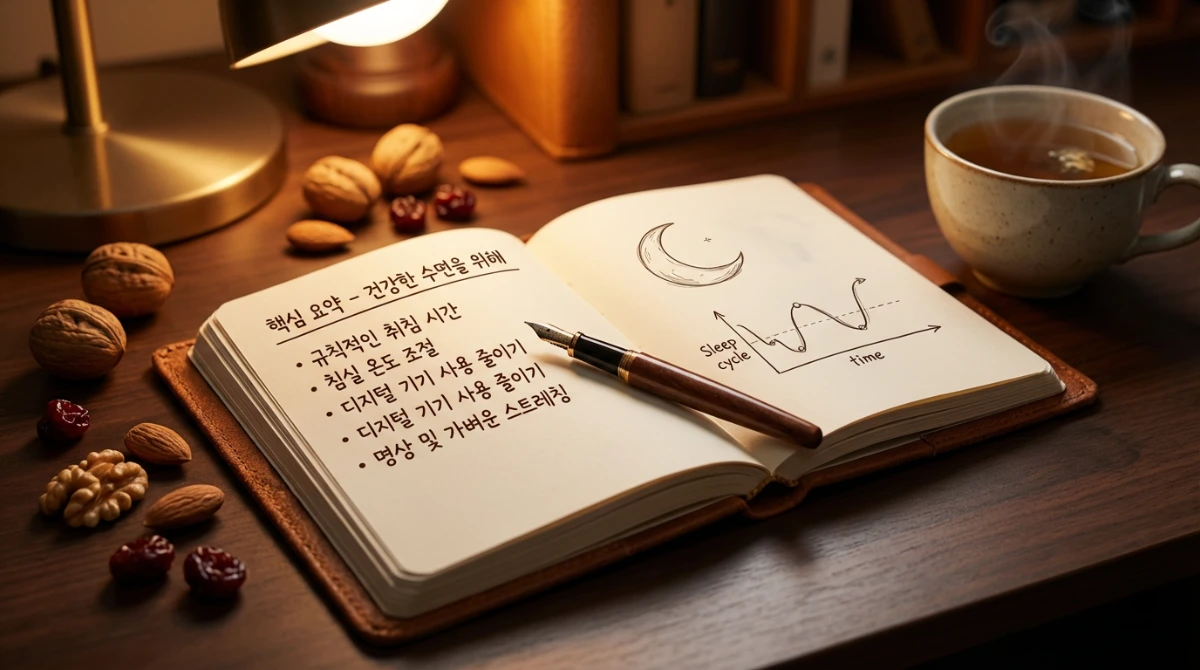 핵심 요약 - 건강한 수면을 위해
• 규칙적인 취침 시간
• 침실 온도 조절
• 디지털 기기 사용 줄이기
• 디지털 기기 사용 줄이기
• 명상 및 가벼운 스트레칭
Sleep
cycle
time